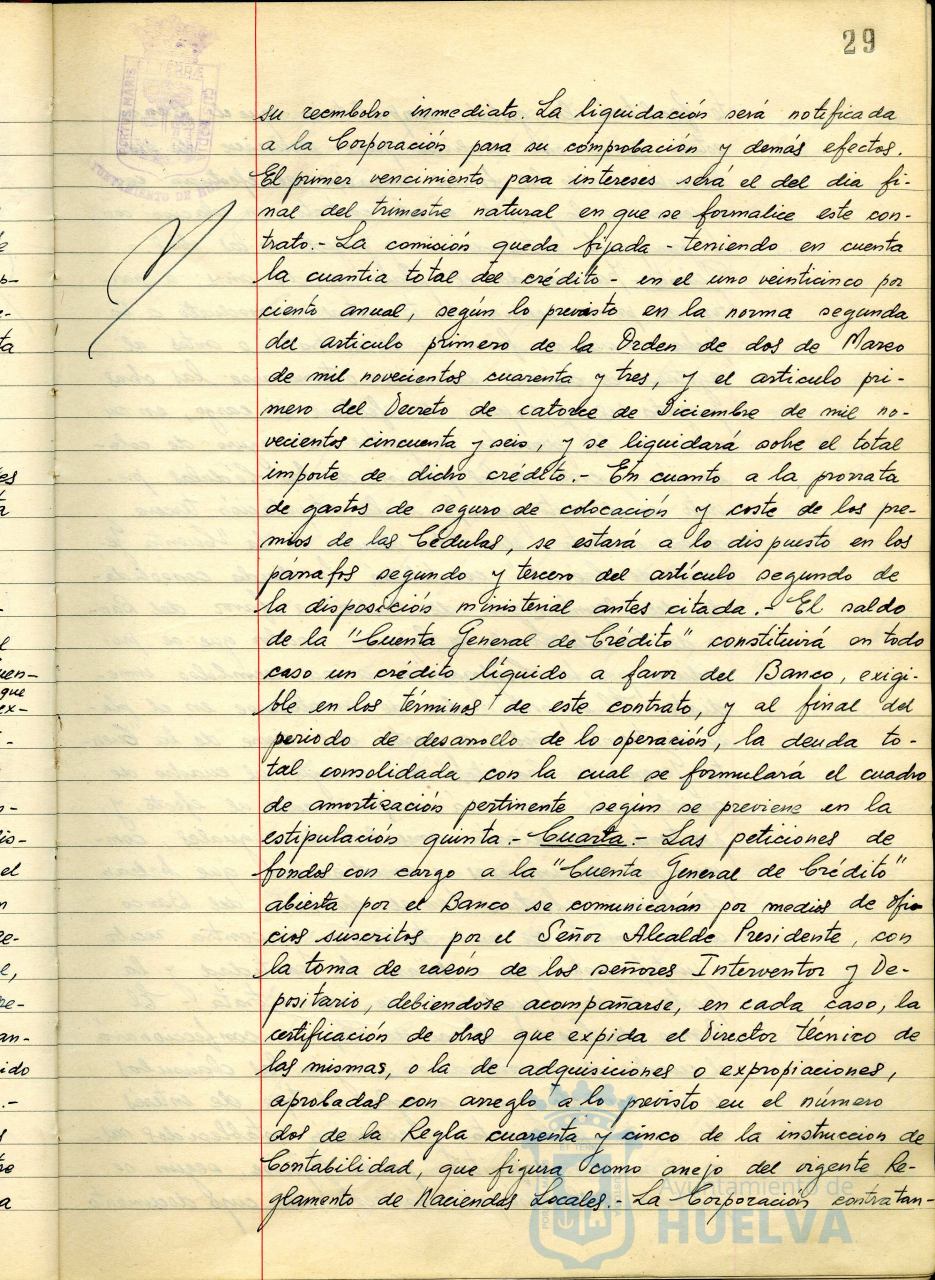 29
su reembolso inmediato. La liquidación será notificada
a la Corporación para su comprobación y demás efectos.
El primer vencimiento para intereses será el del dia fi-
nal del trimestre natural en que se formalice este con-
trato.- La comisión queda fijada - teniendo en cuenta
la cuantia total del crédito - en el uno veinticinco por
ciento anual, según lo previsto en la norma segunda
del articulo primero de la Orden de dos de Marzo
de mil novecientos cuarenta y tres, y el articulo pri-
mero del Decreto de catorce de Diciembre de mil no-
vecientos cincuenta y seis, y se liquidará sobre el total
importe de dicho crédito.- En cuanto a la prorrata
de gastos de seguro de colocación y coste de los pre-
mios de las Cédulas, se estará a lo dispuesto en los
párrafos segundo y tercero del artículo segundo de
la disposición ministerial antes citada.- El saldo
de la "Cuenta General de Crédito" constituirá en todo
caso un crédito líquido a favor del Banco, exigi-
ble en los términos de este contrato, y al final del
periodo de desarrollo de lo operación, la deuda to-
tal consolidada con la cual se formulará el cuadro
de amortización pertinente según se previene en la
estipulación quinta.- Cuarta.- Las peticiones de
fondos con cargo a la "Cuenta General de Crédito"
abierta por el Banco se comunicarán por medios de ofi-
cios suscritos por el Señor Alcalde Presidente, con
la toma de razón de los señores Interventor y De-
positario, debiendose acompañarse, en cada caso, la
certificación de obras que expida el Director técnico de
las mismas, o la de adquisiciones o expropiaciones,
aprobadas con arreglo a lo previsto en el número
dos de la Regla cuarenta y cinco de la instruccion de
Contabilidad, que figura como anejo del vigente Re-
glamento de Haciendas Locales.- La Corporación contratan-
Ayuntamiento de
HUELVA